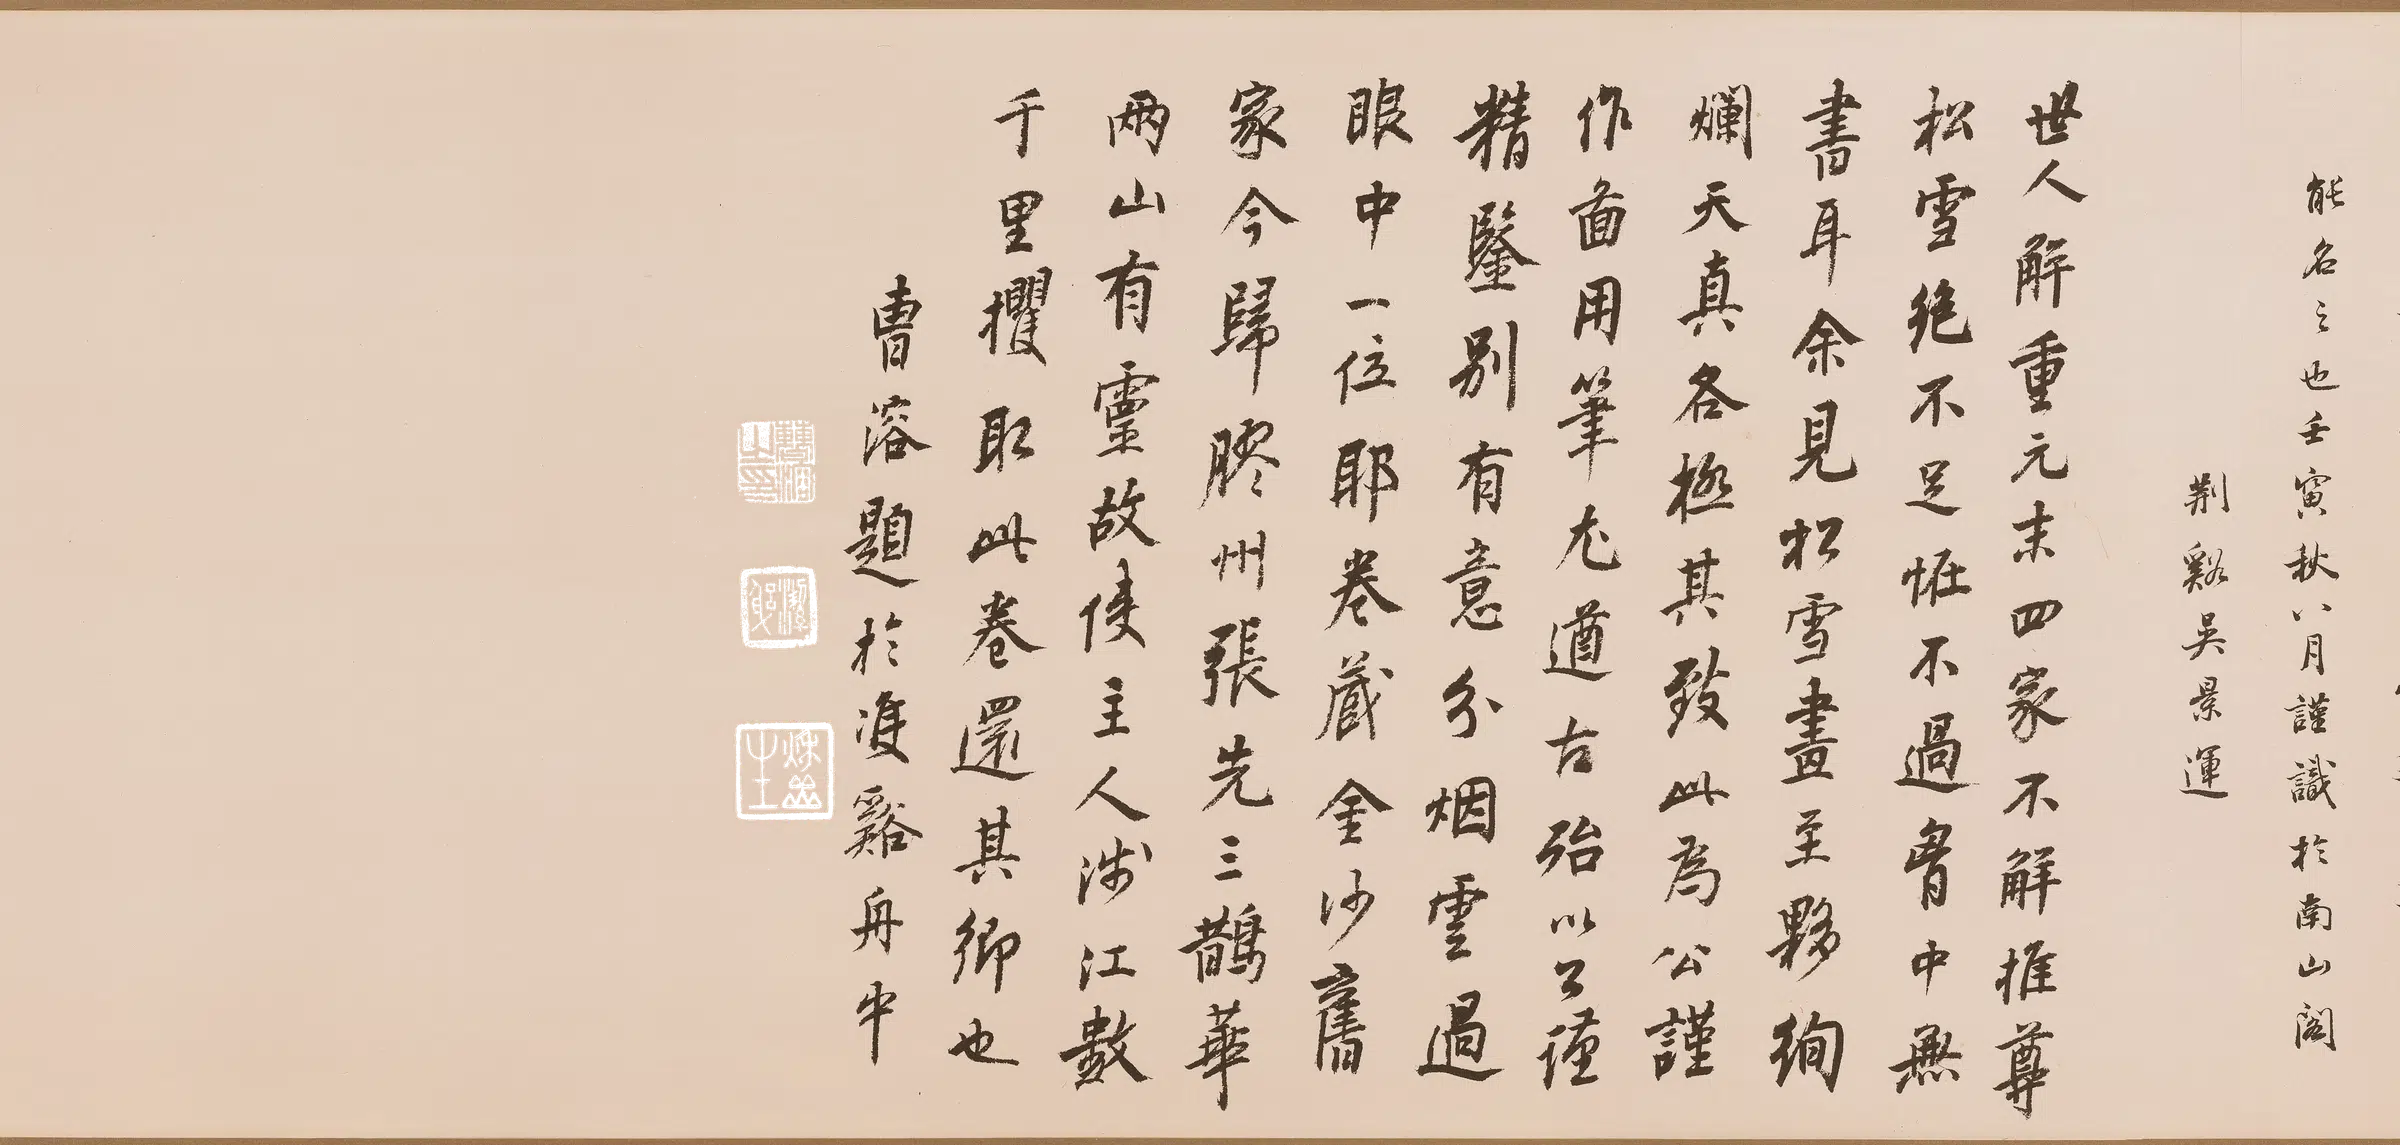 能名之也壬寅秋八月謹識於南山閣
荆谿吴景運
世人解重元末四家不解推尊
松雪絶不足恠不過胷中無
書耳余見松雪畫至夥絢
爛天真各極其致此為公謹
作畵用筆尤遒古殆以公謹
精鑒别有意分烟雲過
眼中一位耶卷蔵金沙舊
家今歸膠州張先三鵲華
兩山有靈故使主人涉江數
千里攫取此卷還其鄉也
曹溶題於溇谿舟中
曹溶之印
潔躬